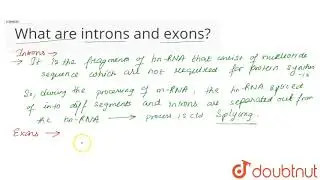 What are introns and exons?
Introns →
→ It is the fragments of hn-RNA that consist of nucleotide
sequence which are not required for protein synthesis
So, during the processing of m-RNA, the hn-RNA spliced
of into diff segments and introns are separated out from
the hn-RNA → process is c/d Splicing.
Exons →
doubtnut